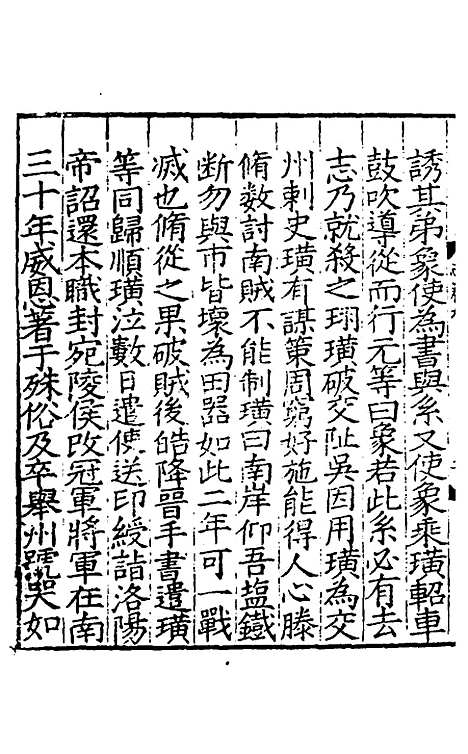 誘其弟象使為書與系又使象乘璜軺車
鼓吹導從而行元等曰象若此系必有去
志乃就殺之珝璜破交阯吳因用璜為交
州刺史璜有謀策周窮好施能得人心滕
脩數討南賊不能制璜曰南岸仰吾塩鐵
断勿與市皆壞為田器如此二年可一戰
滅也脩從之果破賊後皓降晉手書遣璜
等同歸順璜泣數日遣使送印綬詣洛陽
帝詔還本職封宛陵侯改冠軍將軍在南
三十年威恩著于殊俗及卒舉州號哭如